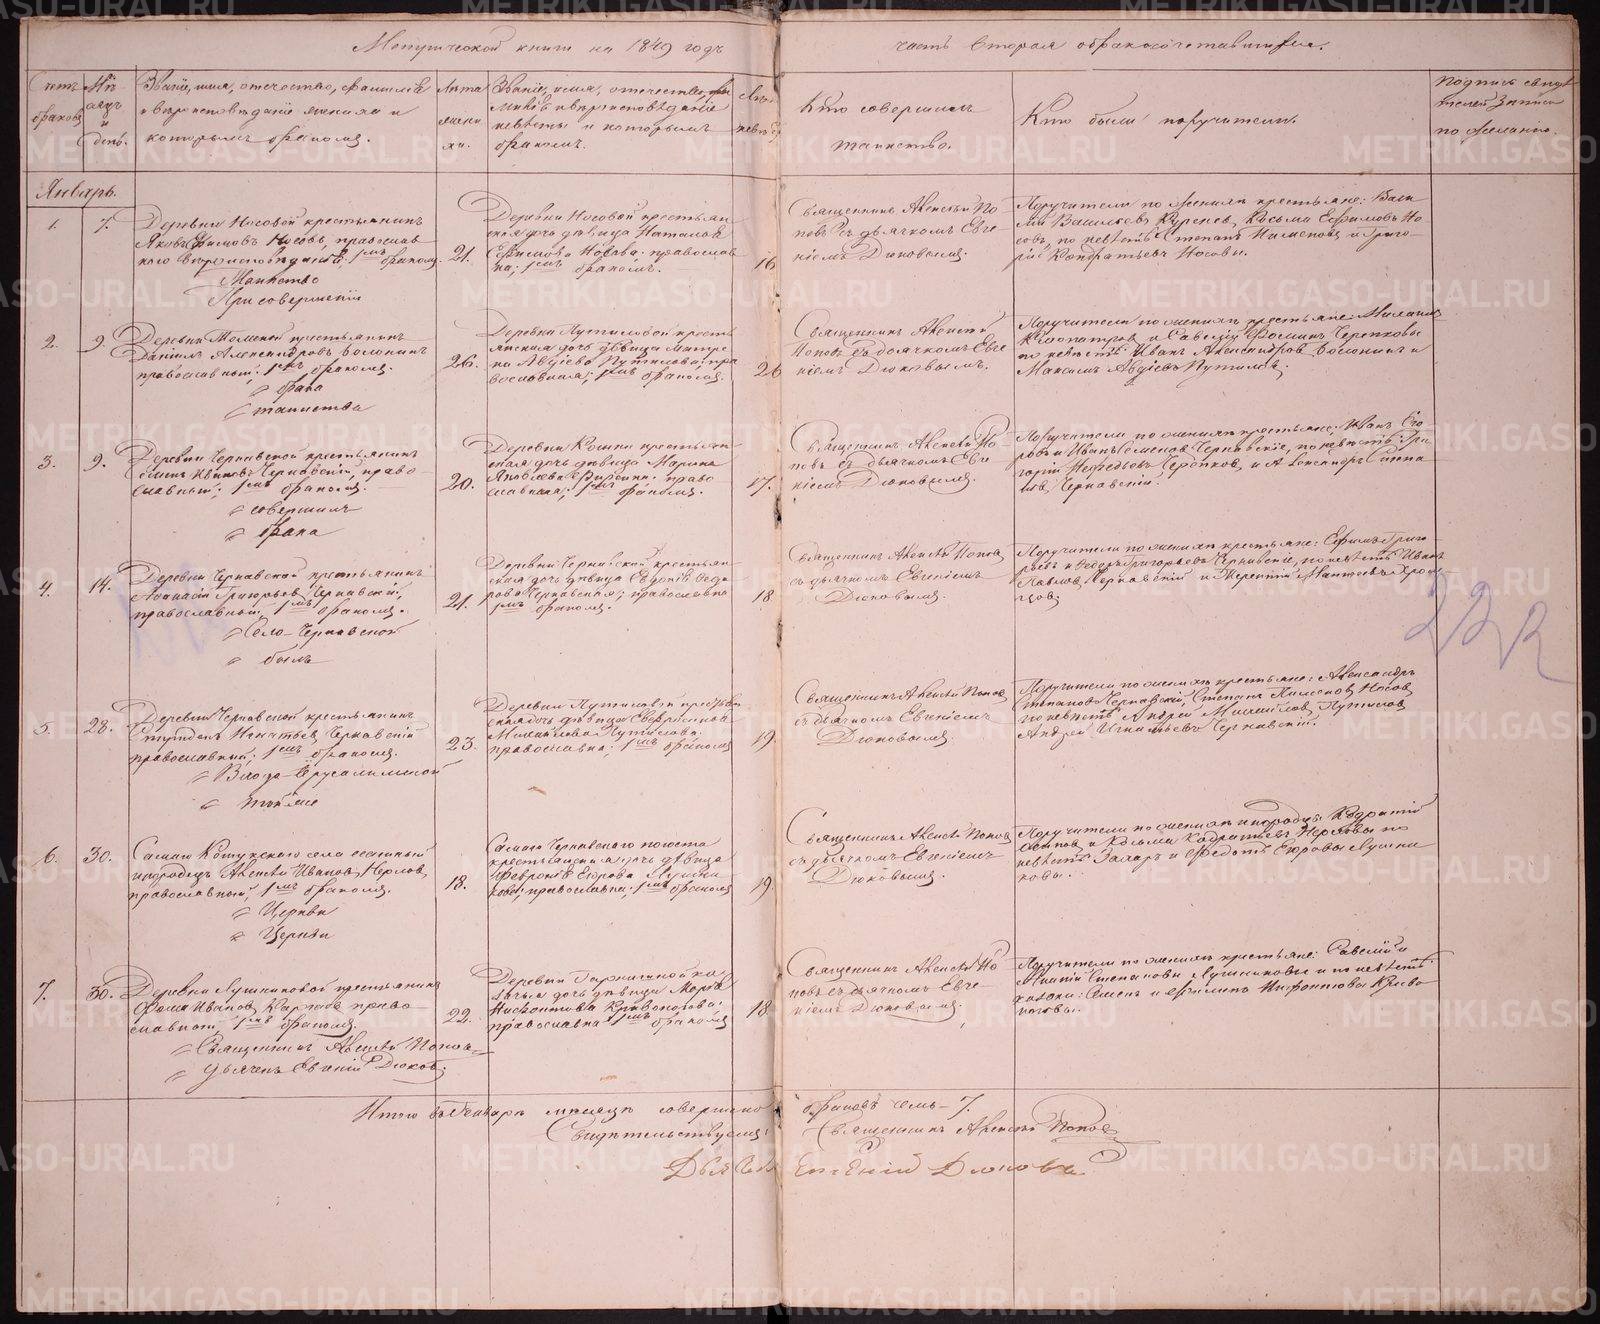 Метрической книги на 1849 годъ часть вторая о бракосочетавшихся.
Счетъ браковъ
Мѣсяцъ и день.
Званіе, имя, отечество, фамилія
и вѣроисповѣданіе жениха и
которымъ бракомъ.
Лѣта жениха.
Званіе, имя, отечество, фа
милія и вѣроисповѣданіе
невѣсты и которымъ
бракомъ.
Кто совершилъ
таинство.
Кто были поручители.
Подпись свидѣ
телей записи
по желанію.
Январь.
1. 7.
Деревни Носовой крестьянинъ
Яковъ Носовъ, православ
наго вѣроисповѣданія; 1мъ бракомъ.
Таинство
При совершеніи
21.
Деревни Носовой крестьян
ская дочь дѣвица Наталья
Ефимова Носова; православ
на; 1мъ бракомъ.
16
Священникъ Алексѣй По
повъ съ дьячкомъ Евге
ніемъ Дюковымъ.
Поручители по женихѣ крестьяне: Васи
лій Васильевъ Куренев, Косьма Ефимовъ Но
совъ, по невѣстѣ Степанъ Пименовъ и Григо
рій Кондратьевъ Носовы.
2. 9.
Деревни крестьянинъ
Даніилъ Александровъ
православный; 1мъ бракомъ.
брака
таинства
26.
Деревни Путиловой кресть
янская дочь дѣвица Матре
на Авдіева Путилова; пра
вославная; 1мъ бракомъ.
26
Священникъ Алексѣй
Поповъ съ дьячкомъ Евге
ніемъ Дюковымъ.
Поручители по женихѣ крестьяне:
и Савелій Ѳоминъ
по невѣстѣ Иванъ Александровъ и
Максимъ Авдіевъ Путиловъ.
3. 9.
Деревни Чернавской крестьянинъ
Ивановъ Чернавскій, право
славный; 1мъ бракомъ.
совершилъ
брака
20.
Деревни крестьян
ская дочь дѣвица Марина
Яковлева право
славная; 1мъ бракомъ.
17.
Священникъ Алексѣй По
повъ съ дьячкомъ Евге
ніемъ Дюковымъ.
Поручители по женихѣ крестьяне: Иванъ Его
ровъ и Иванъ Семеновъ Чернавскіе, по невѣстѣ Гри
горій и Александръ Степа
новъ Чернавскій.
4. 14.
Деревни Чернавской крестьянинъ
Аѳанасій Григорьевъ Чернавскій,
православный, 1мъ бракомъ.
Село-Чернавской
былъ
21.
Деревни Чернавской крестьян
ская дочь дѣвица Евдокія Ѳедо
рова Чернавская; православна
1мъ бракомъ.
18
Священникъ Алексѣй Поповъ
съ дьячкомъ Евгеніемъ
Дюковымъ.
Поручители по женихѣ крестьяне: Ефимъ Григо
рьевъ и Ѳедоръ Григорьевъ Чернавскіе, по невѣстѣ Иванъ
Павловъ Чернавскій и Терентій
5. 28.
Деревни Чернавской крестьянинъ
Игнатьевъ Чернавскій
православный; 1мъ бракомъ.
Входо-Ерусалимской
тоя же
23.
Деревни Путиловой крестьян
ская дочь дѣвица Евфросинья
Михайлова Путилова;
православна; 1мъ бракомъ
19.
Священникъ Алексѣй Поповъ
съ дьячкомъ Евгеніемъ
Дюковымъ.
Поручители по женихѣ крестьяне: Александръ
Степановъ Чернавскій, Степанъ Пименовъ Носовъ
по невѣстѣ Андрей Михайловъ Путиловъ
Андрей Игнатьевъ Чернавскій.
6. 30.
Самаго села ясашный
инородецъ Алексѣй Ивановъ
православный, 1мъ бракомъ.
Церкви
Церкви
18.
Самаго Чернавскаго погоста
крестьянская дочь дѣвица
Ѳевронія Егорова Лушни
кова; православна; 1мъ бракомъ
19.
Священникъ Алексѣй Поповъ
съ дьячкомъ Евгеніемъ
Дюковымъ.
Поручители по женихѣ инородцы: Кодратій
Осиповъ и Косьма Кодратьевъ по
невѣстѣ Захаръ и Ѳедотъ Егоровы Лушни
ковы.
7. 30.
Деревни Лушниковой крестьянинъ
Ѳома Ивановъ право
славный, 1мъ бракомъ.
Священникъ Алексѣй Поповъ
Дьячекъ Евгеній Дюковъ.
22.
Деревни ка
зачья дочь дѣвица Марѳа
Нифонтова Кривоногова;
православна 1мъ бракомъ
18.
Священникъ Алексѣй По
повъ съ дьячкомъ Евге
ніемъ Дюковымъ.
Поручители по женихѣ крестьяне: Савелій и
Степановы Лушниковы и по невѣстѣ
казаки: Семенъ и Филипъ Нифонтовы Криво
ноговы.
Итого въ Январѣ мѣсяцѣ совершено браковъ семь-7.
Свидѣтельствуемъ: Священникъ Алексѣй Поповъ
Дьячекъ Евгеній Дюковъ
METRIKI.GASO-URAL.RU